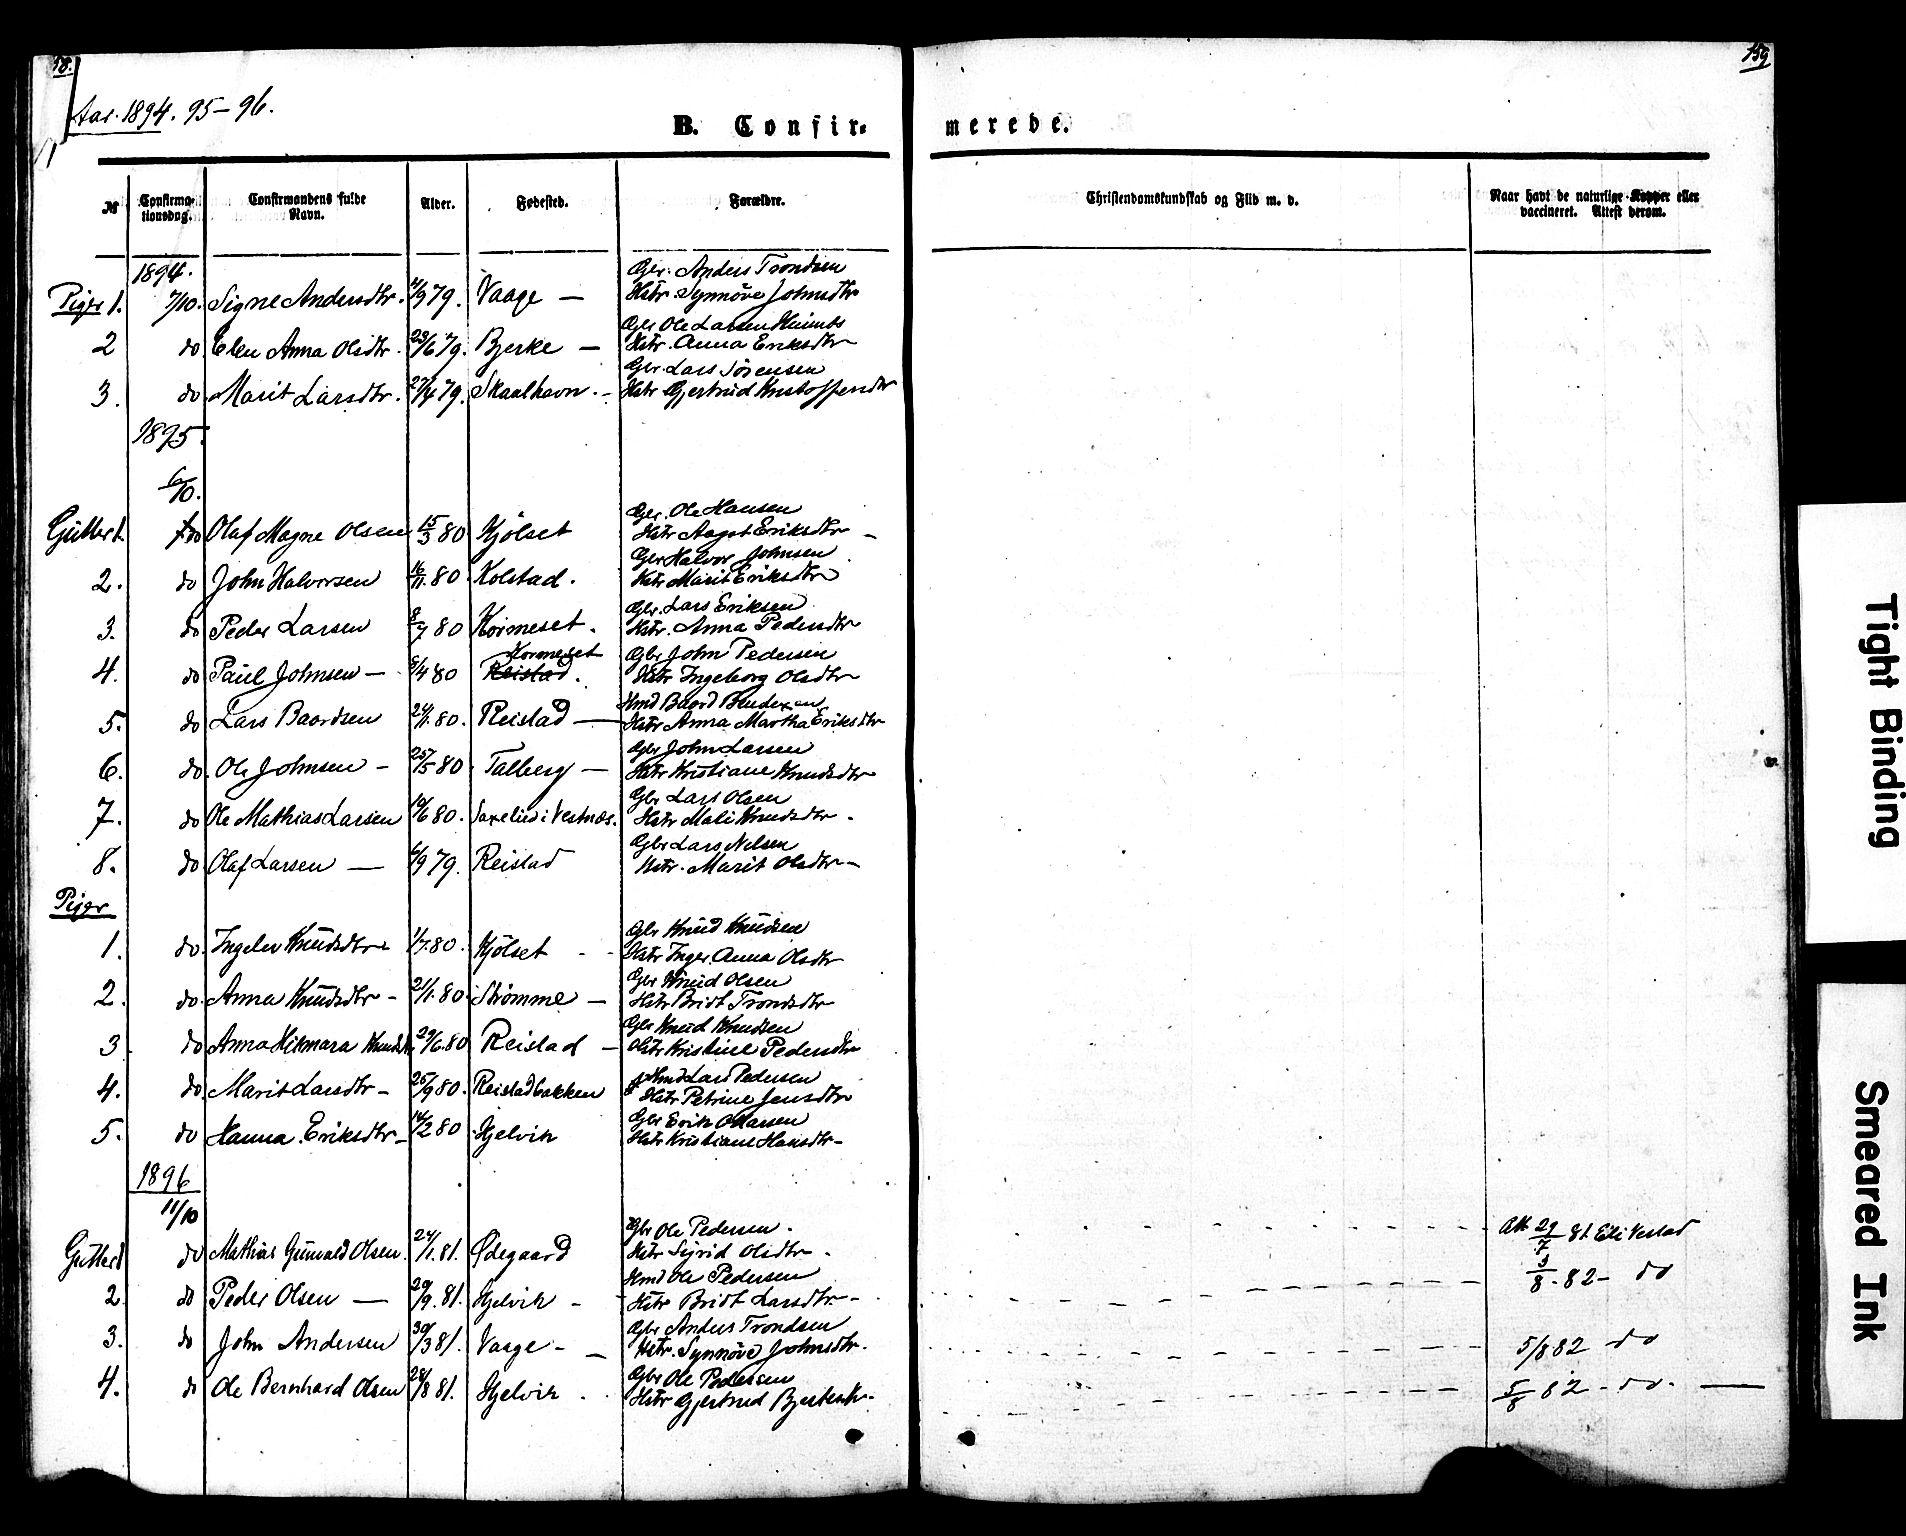 159
Aar. 1894. 95-96.
B. Confir-
merede.
№ Confirmationsdag. Confirmandens fulde Navn. Alder. Fødested. Forældre. Christendomskundskab og Flid m. v. Naar havt de naturlige Kopper eller vaccineret. Attest derom.
1894. Gbr. Anders Trondsen
Piger 1. 7/10. Signe Andersdtr. 4/9 79. Vaage — Hstr. Synnøve Johnsdtr
Gbr Ole Larsen
2 do Elen Anna Olsdtr. 23/6 79. Bjerke — Hstr. Anna Eriksdtr
Gbr. Lars Sørensen
3. do Marit Larsdtr. 27/4 79. Skaalhavn. - Hstr Gjertrud Kristoffersdtr
1895.
6/10.
Gbr. Ole Hansen
Gutter 1. do Olaf Magne Olsen 15/3 80 Kjølset Hstr Aagot Eriksdtr -
Gbr Halvor Johnsen
2. do John Halvorsen 16/11. 80. Kolstad. Hstr Marit Eriksdtr
Gbr. Lars Eriksen
3. do Peder Larsen 8/7 80 Kormeset. Hstr. Anna Pedersdtr
Kormeset Gbr John Pedersen
4. do Paul Johnsen — 5/4 80 Reistad. Hstr Ingeborg Olsdtr
Hmd Baard
5. do Lars Baardsen 24/1. 80. Reistad — Hstr Anna Martha Eriksdtr
Gbr John Larsen
6. do. Ole Johnsen - 25/5 80. Talberg — Hstr Kristiane Knudsdtr
Gbr Lars Olsen
7. do Ole Mathias Larsen 10/6 80. Saxelid i Vestnæs. Hstr Mali Knudsdtr.
Gbr Lars Nelsen
8. do Olaf Larsen — 6/9 79. Reistad Hstr. Marit Olsdtr -
Piger
Gbr Knud Knudsen
1. do. Ingelev Knudsdtr 1/7. 80. Kjølset - - Hstr Inger Anna Olsdtr
Gbr Knud Olsen
2. do. Anna Knudsdtr - 21/1. 80. Strømme — Hstr Brit Trondsdtr
Gbr Knud Knudsen
3. do Anna Hikmara Knudsdtr 29/6. 80 Reistad — Hstr Kristine Pedersdtr
Hmd Lars Pedersen
4. do Marit Larsdtr - 25/9 80. Reistadbakken Hstr Petrine Jensdtr
Gbr Erik
5. do Hanna. Eriksdtr - 14/2 80 Hjelvik Hstr Kristiane Hansdtr -
1896
11/10
Gbr Ole Pedersen.
Gutter 1 do Mathias Gunvald Olsen. 24/1. 81. Ødegaard Hstr Sigrid Olsdtr. Att. 29/7 81. Eli Vestad
Hmd Ole Pedersen
2. do Peder Olsen — 29/9. 81. Hjelvik - Hstr Brit Larsdtr - 3/8. 82 - do
Gbr Anders Trondsen
3. do John Andersen 30/3 81. Vaage - Hstr. Synnøve Johnsdtr. 5/8 82 do
Gbr Ole Pedersen
4. do Ole Bernhard Olsen 28/8 81. Hjelvik. Hstr Gjertrud 5/8 82 - do. —
Tight Binding
Smeared Ink